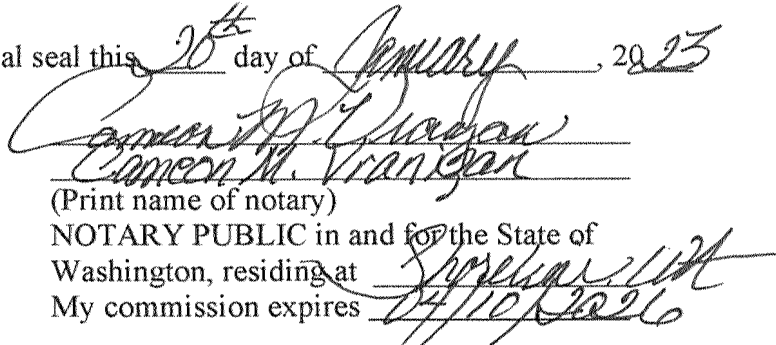 al seal this 20th day of January, 2023
Cameon M. Vranigan
Cameon M. Vranigan
(Print name of notary)
NOTARY PUBLIC in and for the State of
Washington, residing at Shoreline, WA
My commission expires 04/10/2026